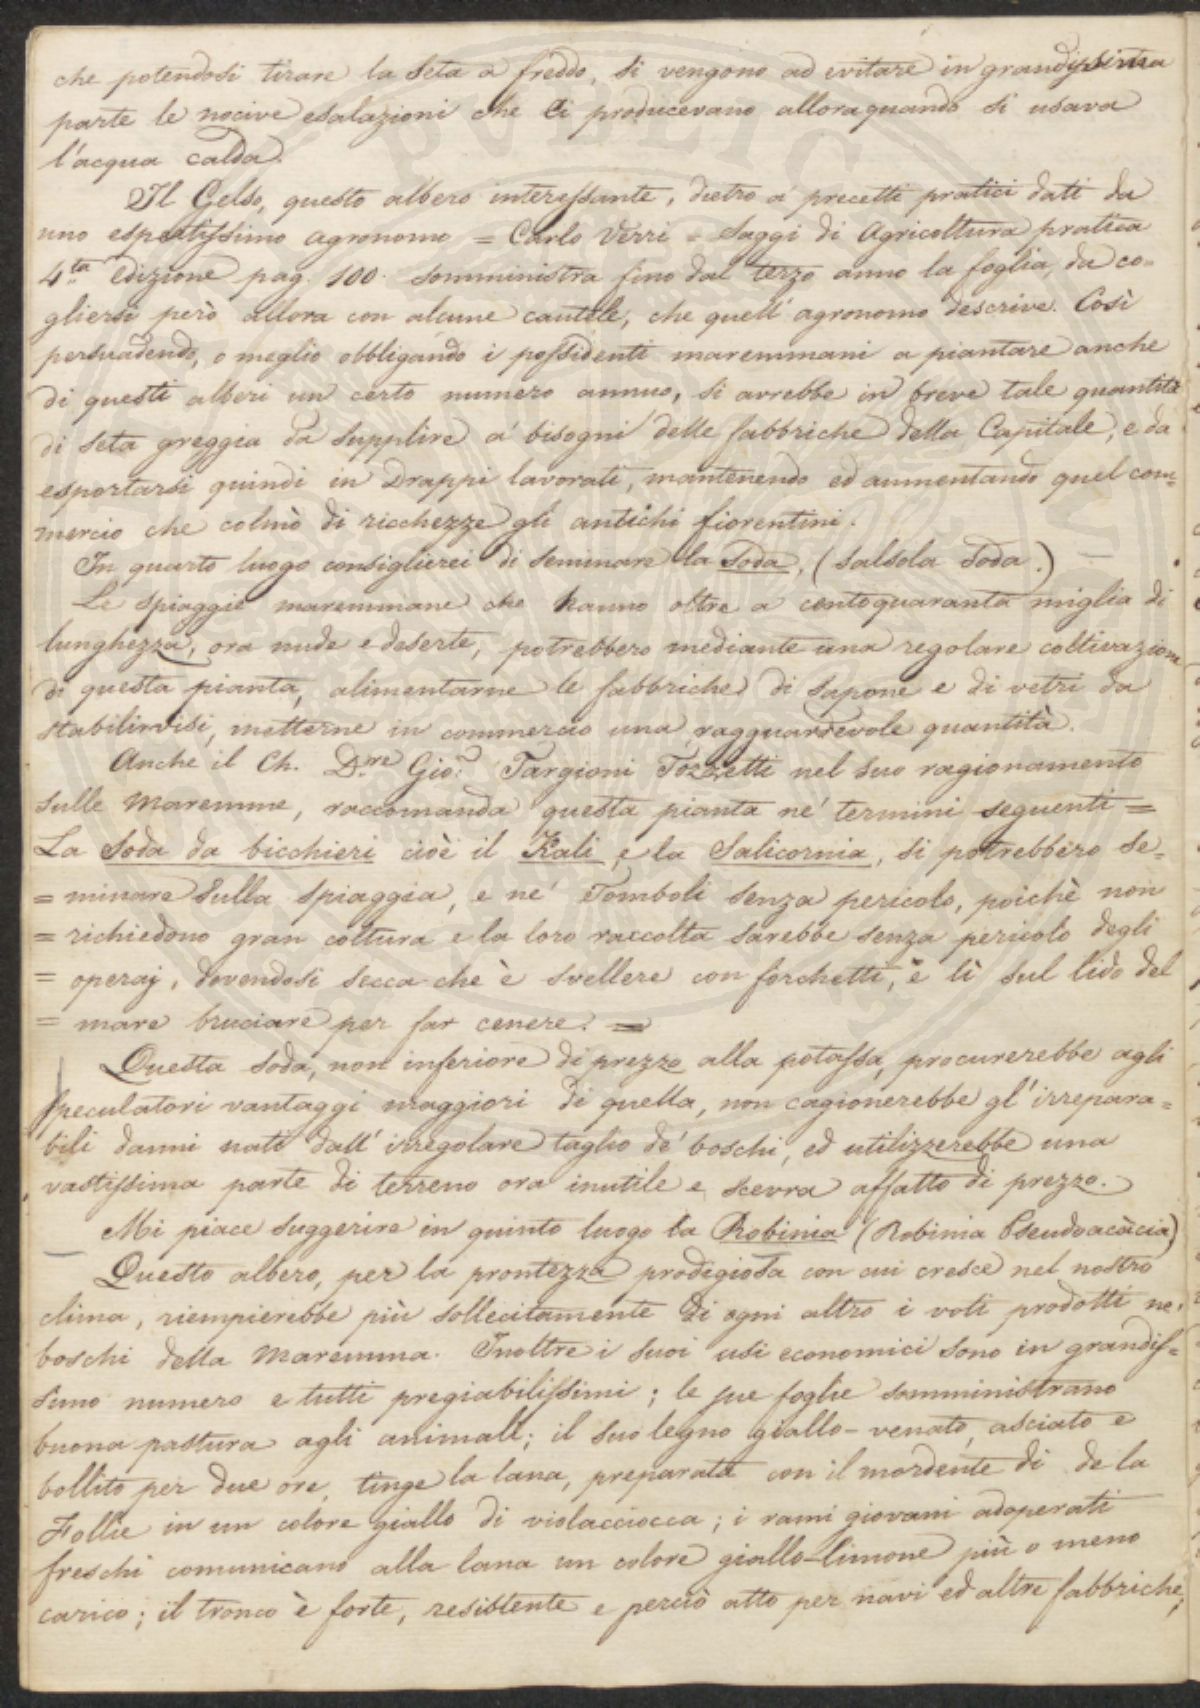 che potendosi tirare la seta a freddo, si vengono ad evitare in grandissima
parte le nocive esalazioni che si producevano alloraquando si usava
l'acqua calda.
Il Gelso, questo albero interessante, dietro a' precetti pratici dati da
uno espertissimo agronomo = Carlo Verri = Saggi di Agricoltura pratica
4.ta Edizione pag. 100. somministra fino dal terzo anno la foglia, da co=
gliersi però allora con alcune cautele, che quell'agronomo descrive. Così
persuadendo, o meglio obbligando i possidenti maremmani a piantare anche
di questi alberi un certo numero annuo, si avrebbe in breve tale quantità
di seta greggia da supplire a' bisogni delle fabbriche della Capitale, e da
esportarsi quindi in Drappi lavorati, mantenendo ed aumentando quel com=
mercio che colmò di ricchezze gli antichi fiorentini.
In quarto luogo consiglierei di seminare la Soda, (Salsola Soda.)
Le spiaggie maremmane che hanno oltre a centoquaranta miglia di
lunghezza, ora nude e deserte, potrebbero mediante una regolare coltivazione
di questa pianta, alimentarne le fabbriche di sapone e di vetri da
stabilirvisi, metterne in commercio una ragguardevole quantità.
Anche il Ch. D.re Gio: Targioni Tozzetti nel suo ragionamento
sulle Maremme, raccomanda questa pianta ne' termini seguenti =
La Soda da bicchieri cioè il Kali, e la Salicornia, si potrebbero se=
= minare sulla spiaggia, e ne' Tomboli senza pericolo, poichè non
= richiedono gran coltura e la loro raccolta sarebbe senza pericolo degli
= operaj, dovendosi secca che è svellere con forchetti, e lì sul lido del
= mare bruciare per far cenere. =
Questa soda, non inferiore di prezzo alla potassa, procurerebbe agli
speculatori vantaggi maggiori di quella, non cagionerebbe gl'irrepara=
bili danni nati dall'irregolare taglio de' boschi, ed utilizzerebbe una
vastissima parte di terreno ora inutile e scevra affatto di prezzo.
Mi piace suggerire in quinto luogo la Robinia (Robinia Pseudoacàcia)
Questo albero, per la prontezza prodigiosa con cui cresce nel nostro
clima, riempierebbe più sollecitamente di ogni altro i voti prodotti ne'
boschi della Maremma. Inoltre i suoi usi economici sono in grandis=
simo numero e tutti pregiabilissimi; le sue foglie somministrano
buona pastura agli animali; il suo legno giallo-venato, asciato e
bollito per due ore, tinge la lana, preparata con il mordente di de la
Follie in un colore giallo di violacciocca; i rami giovani adoperati
freschi comunicano alla lana un colore giallo-limone più o meno
carico; il tronco è forte, resistente e perciò atto per navi ed altre fabbriche;